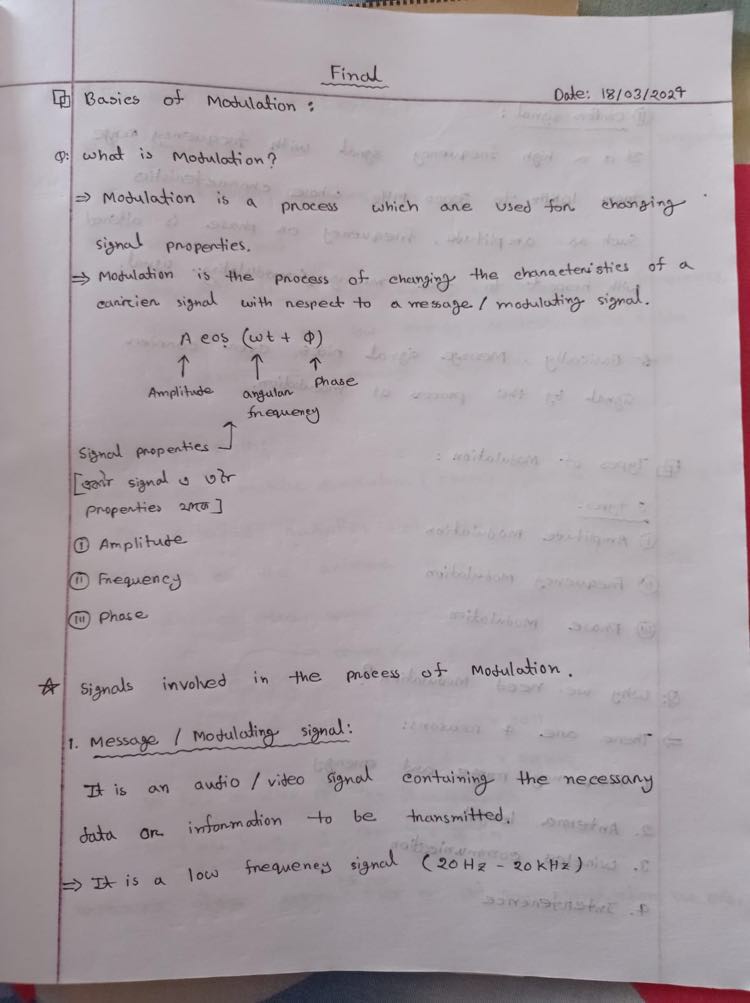 Final
Basics of Modulation :
Date: 18/03/2024
Q: What is Modulation?
⇒ Modulation is a process which are used for changing
signal properties.
⇒ Modulation is the process of changing the characteristics of a
carrier signal with respect to a message / modulating signal.
A cos (ωt + φ)
↑ ↑ ↑
Amplitude angular Phase
frequency
Signal properties
[ signal ও ৩টা
properties থাকে]
(I) Amplitude
(II) Frequency
(III) Phase
☆ Signals involved in the process of Modulation.
1. Message / Modulating signal:
It is an audio / video signal containing the necessary
data or information to be transmitted.
⇒ It is a low frequency signal (20 Hz - 20 kHz)